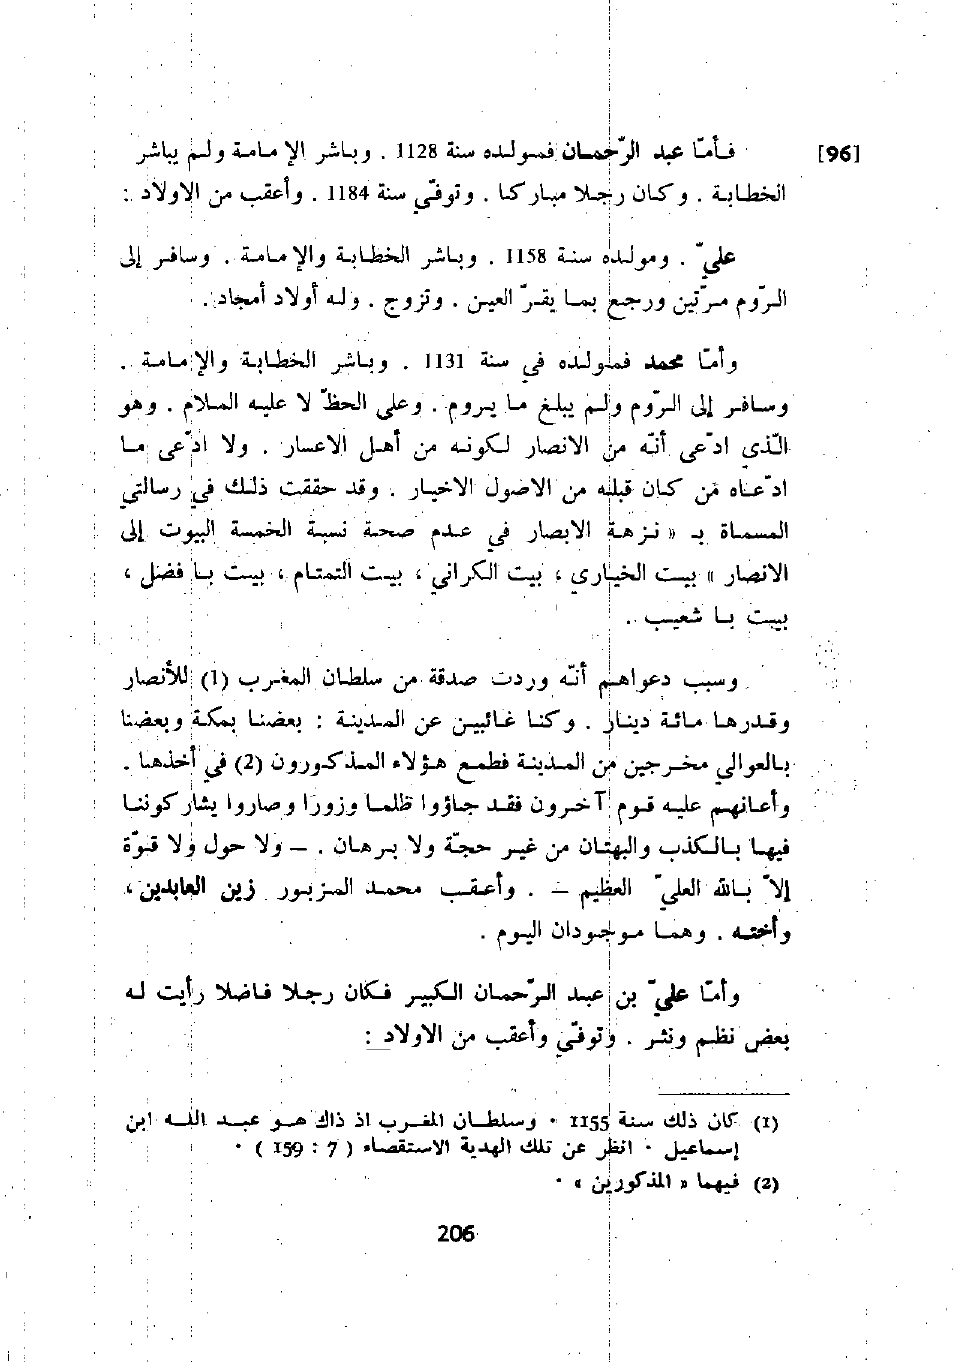 [96] فأمّا عبد الرّحمان فمولده سنة 1128 . وباشر الإمامة ولم يباشر
الخطابة . وكان رجلا مباركا . وتوفّي سنة 1184 . وأعقب من الاولاد :
عليّ . ومولده سنة 1158 . وباشر الخطابة والإمامة . وسافر إلى
الرّوم مرّتين ورجع بما يقرّ العين . وتزوج . وله أولاد أمجاد .
وأمّا محمد فمولده في سنة 1131 . وباشر الخطابة والإمامة .
وسافر إلى الرّوم ولم يبلغ ما يروم . وعلى الحظّ لا عليه الملام . وهو
الّذي ادّعى أنّه من الانصار لكونه من أهل الاعسار . ولا ادّعى ما
ادّعاه مَن كان قبله من الاصول الاخيار . وقد حققت ذلك في رسالتي
المسماة بـ « نزهة الابصار في عدم صحة نسبة الخمسة البيوت إلى
الانصار » بيت الخياري ، بيت الكراني ، بيت التمتام ، بيت با فضل ،
بيت با شعيب .
وسبب دعواهم أنّه وردت صدقة من سلطان المغرب (1) للأنصار
وقدرها مائة دينار . وكنا غائبين عن المدينة : بعضنا بمكة وبعضنا
بالعوالي مخرجين من المدينة فطمع هؤلاء المذكورون (2) في أخذها .
وأعانهم عليه قوم آخرون فقد جاؤوا ظلما وزورا وصاروا يشاركوننا
فيها بالكذب والبهتان من غير حجّة ولا برهان . – ولا حول ولا قوّة
إلاّ بالله العليّ العظيم – . وأعقب محمد المزبور زين العابدين ،
وأخته . وهما موجودان اليوم .
وأمّا عليّ بن عبد الرّحمان الكبير فكان رجلا فاضلا رأيت له
بعض نظم ونثر . وتوفّي وأعقب من الاولاد :
(1) كان ذلك سنة 1155 . وسلطان المغرب اذ ذاك هو عبد الله ابن
إسماعيل . انظر عن تلك الهدية الاستقصاء ( 7 : 159 ) .
(2) فيهما « المذكورين » .
206